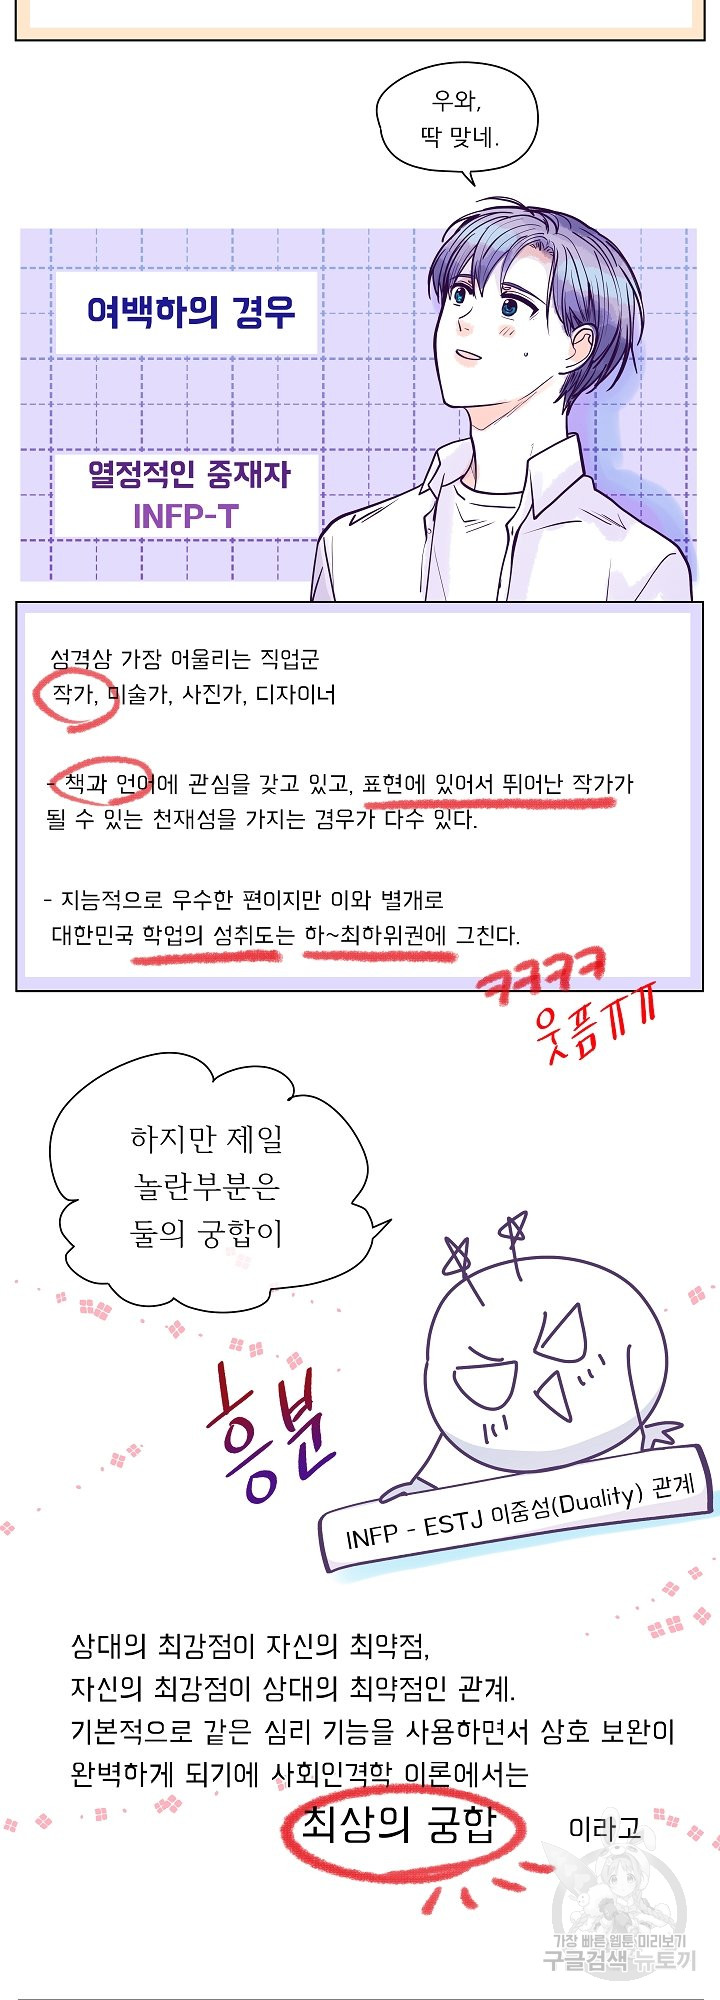 우와,
딱 맞네.
여백하의 경우
열정적인 중재자
INFP-T
성격상 가장 어울리는 직업군
작가, 미술가, 사진가, 디자이너
- 책과 언어에 관심을 갖고 있고, 표현에 있어서 뛰어난 작가가
될 수 있는 천재성을 가지는 경우가 다수 있다.
- 지능적으로 우수한 편이지만 이와 별개로
대한민국 학업의 성취도는 하~최하위권에 그친다.
ㅋㅋㅋㅋ
웃픔ㅠㅠ
하지만 제일
놀란부분은
둘의 궁합이
흥분
INFP - ESTJ 이중성(Duality) 관계
상대의 최강점이 자신의 최약점,
자신의 최강점이 상대의 최약점인 관계.
기본적으로 같은 심리 기능을 사용하면서 상호 보완이
완벽하게 되기에 사회인격학 이론에서는
최상의 궁합 이라고
가장 빠른 웹툰 미리보기
구글검색 뉴토끼